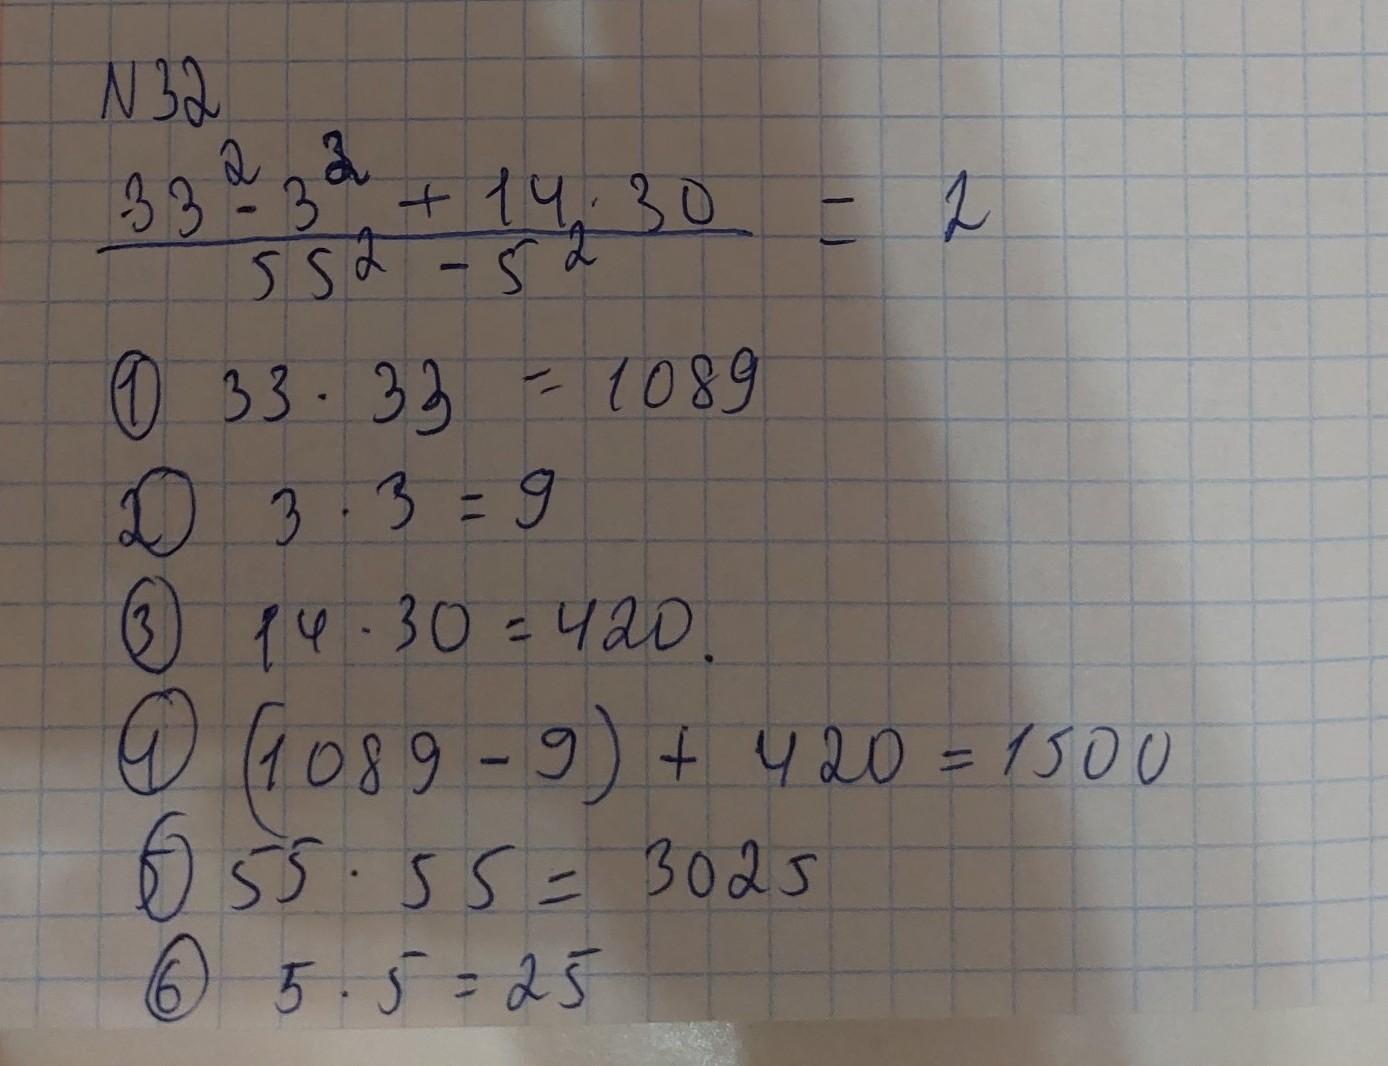 N32
33² - 3² + 14 · 30 = 2
55² - 5²
① 33 · 33 = 1089
② 3 · 3 = 9
③ 14 · 30 = 420.
④ (1089 - 9) + 420 = 1500
⑤ 55 · 55 = 3025
⑥ 5 · 5 = 25